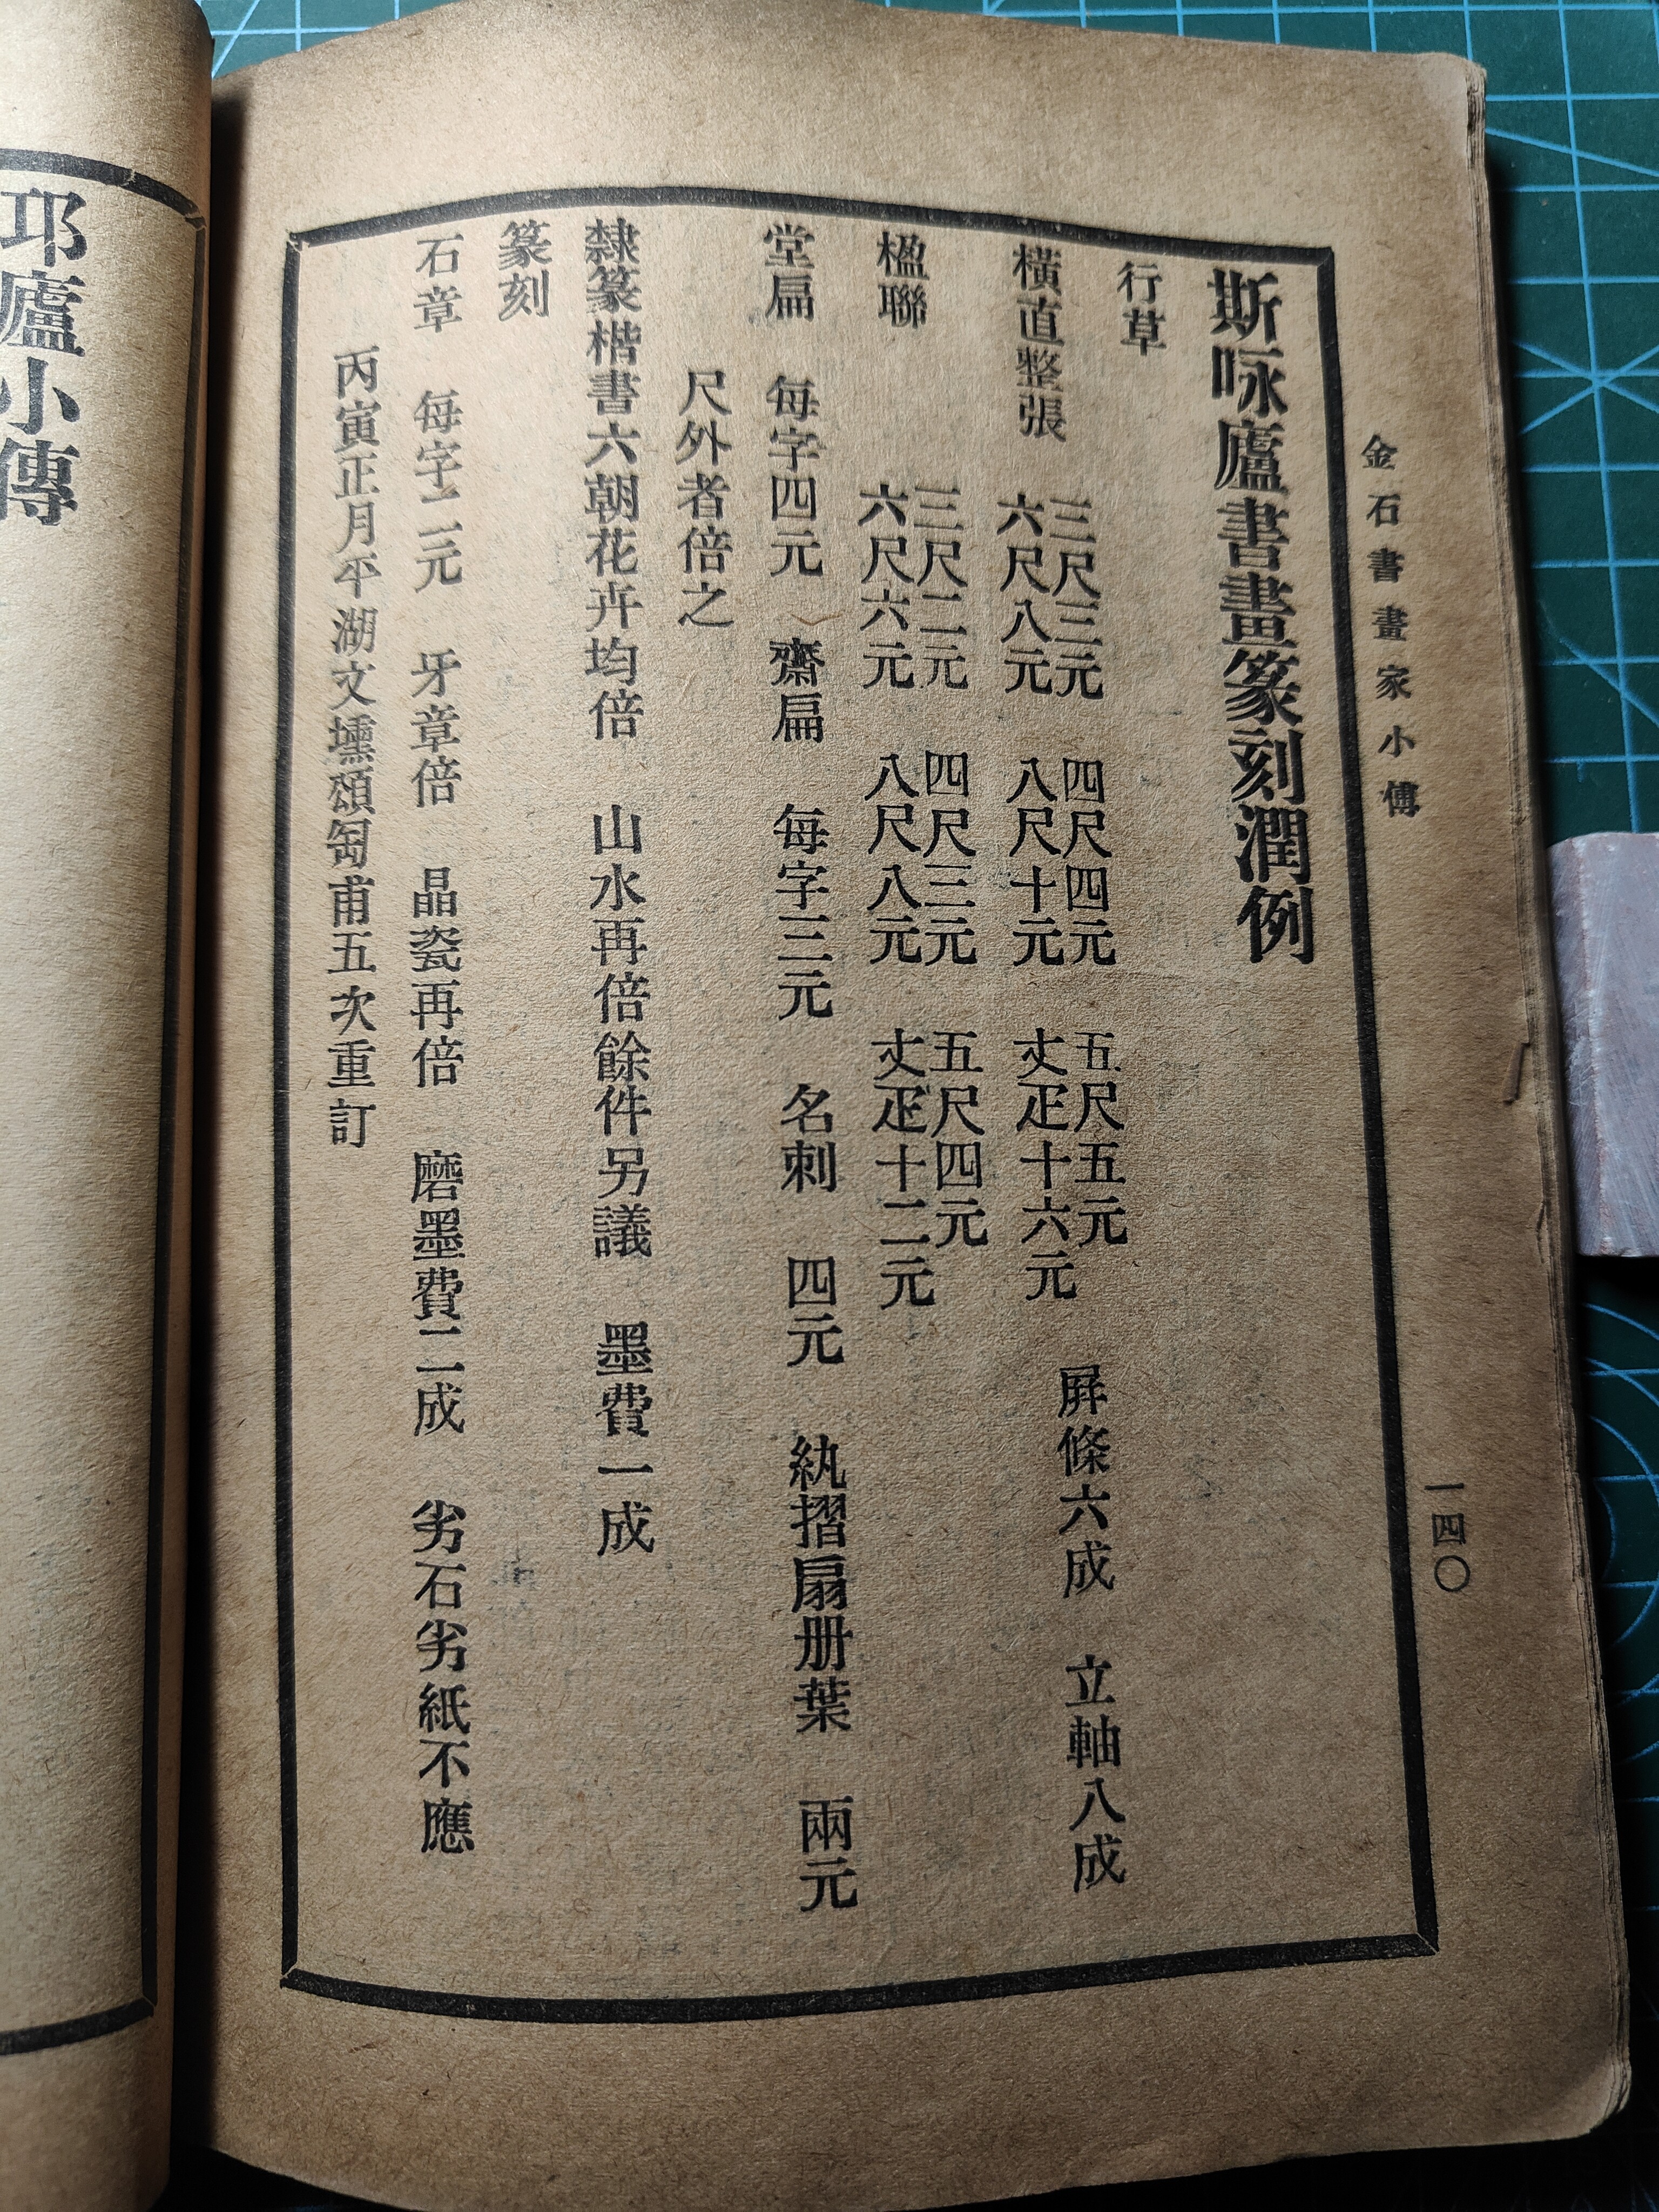 金石書畫家小傳
一四〇
斯咏廬書畫篆刻潤例
行草
橫直整張 三尺三元 四尺四元 五尺五元 屛條六成 立軸八成
六尺八元 八尺十元 丈疋十六元
楹聯 三尺二元 四尺三元 五尺四元
六尺六元 八尺八元 丈疋十二元
堂扁 每字四元 齋扁 每字三元 名刺 四元 紈摺扇册葉 兩元
尺外者倍之
隸篆楷書六朝花卉均倍 山水再倍餘件另議 墨費一成
篆刻
石章 每字二元 牙章倍 晶瓷再倍 磨墨費二成 劣石劣紙不應
丙寅正月平湖文壎頌匋甫五次重訂
邛廬小傳